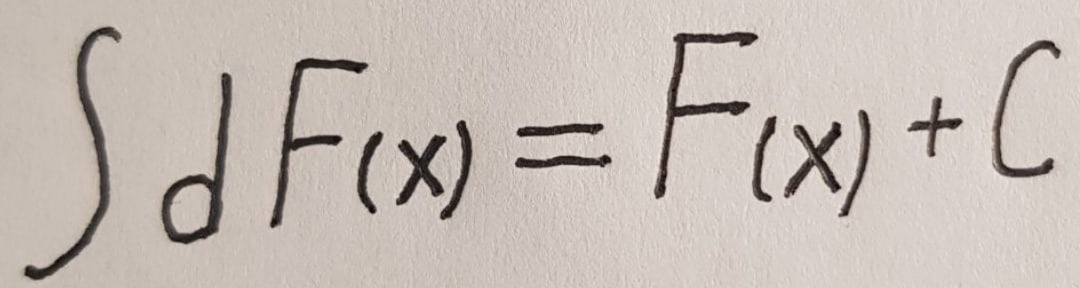 ∫ d F(x) = F(x) + C